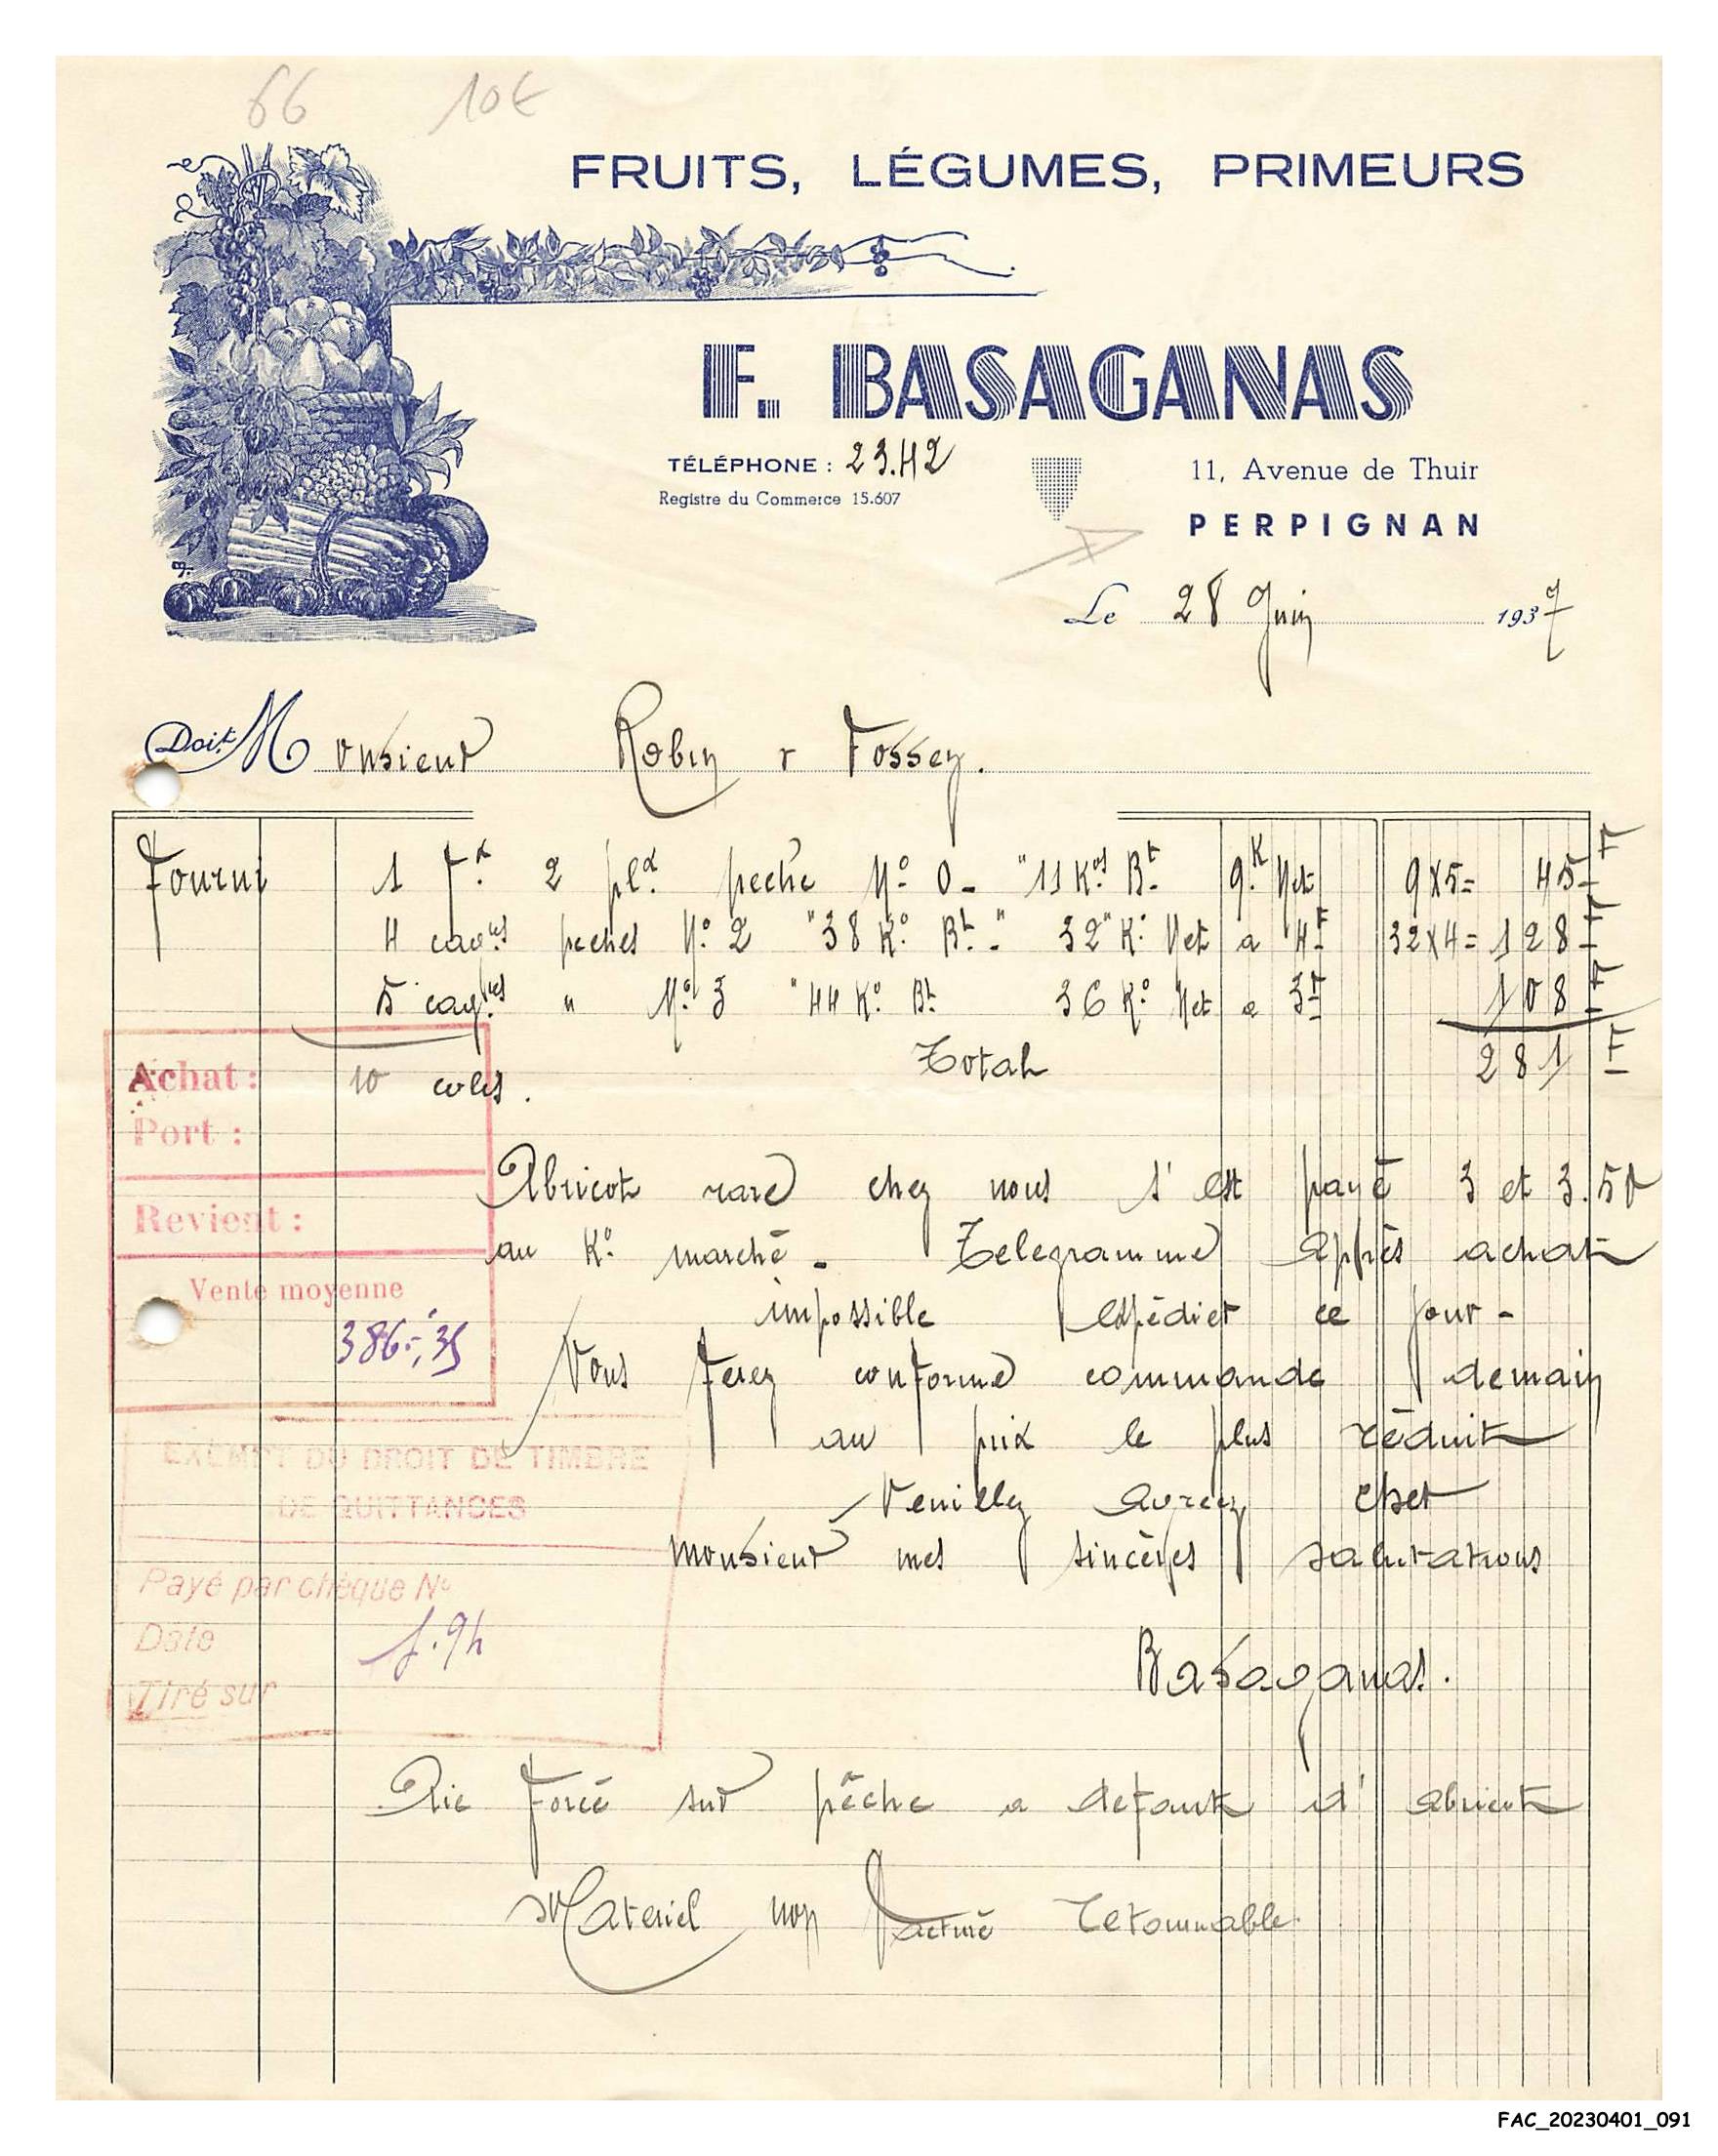 66 10€
FRUITS, LÉGUMES, PRIMEURS
F. BASAGANAS
TÉLÉPHONE : 23.42
Registre du Commerce 15.607
11, Avenue de Thuir
PERPIGNAN
Le 28 Juin 1937
Doit Monsieur Robin & Fossey.
Fourni 1 f.x 2 pl.x peche No 0- "11 Kos Bt- 9.K Net 9x5= 45 F
4 cag.es peches No 2 "38 Ko. Bt-" 32" Ko Net a 4F 32x4= 128 F
5 cag.es " No 3 "44 Ko. Bt 36 Ko Net a 3F 108 F
Total 281 F
10 colis.
Achat :
Port :
Revient :
Vente moyenne
386-,35
Abricot rare chez nous s'est payé 3 et 3.50
au Ko. marché. Telegramme après achat
impossible expédier ce jour-
Vous ferez conforme commande demain
au prix le plus réduit
Veuillez
Monsieur mes sincères salutations
Basaganas.
EXEMPT DU DROIT DE TIMBRE
DE QUITTANCES
Payé par chèque No
Date
Tiré sur
forcé sur pêche a defaut d'abricot
Materiel non facturé retournable.
FAC_20230401_091